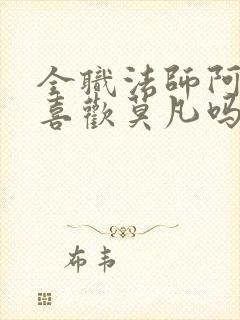 全職法師阿
喜歡莫凡嗎
布韦